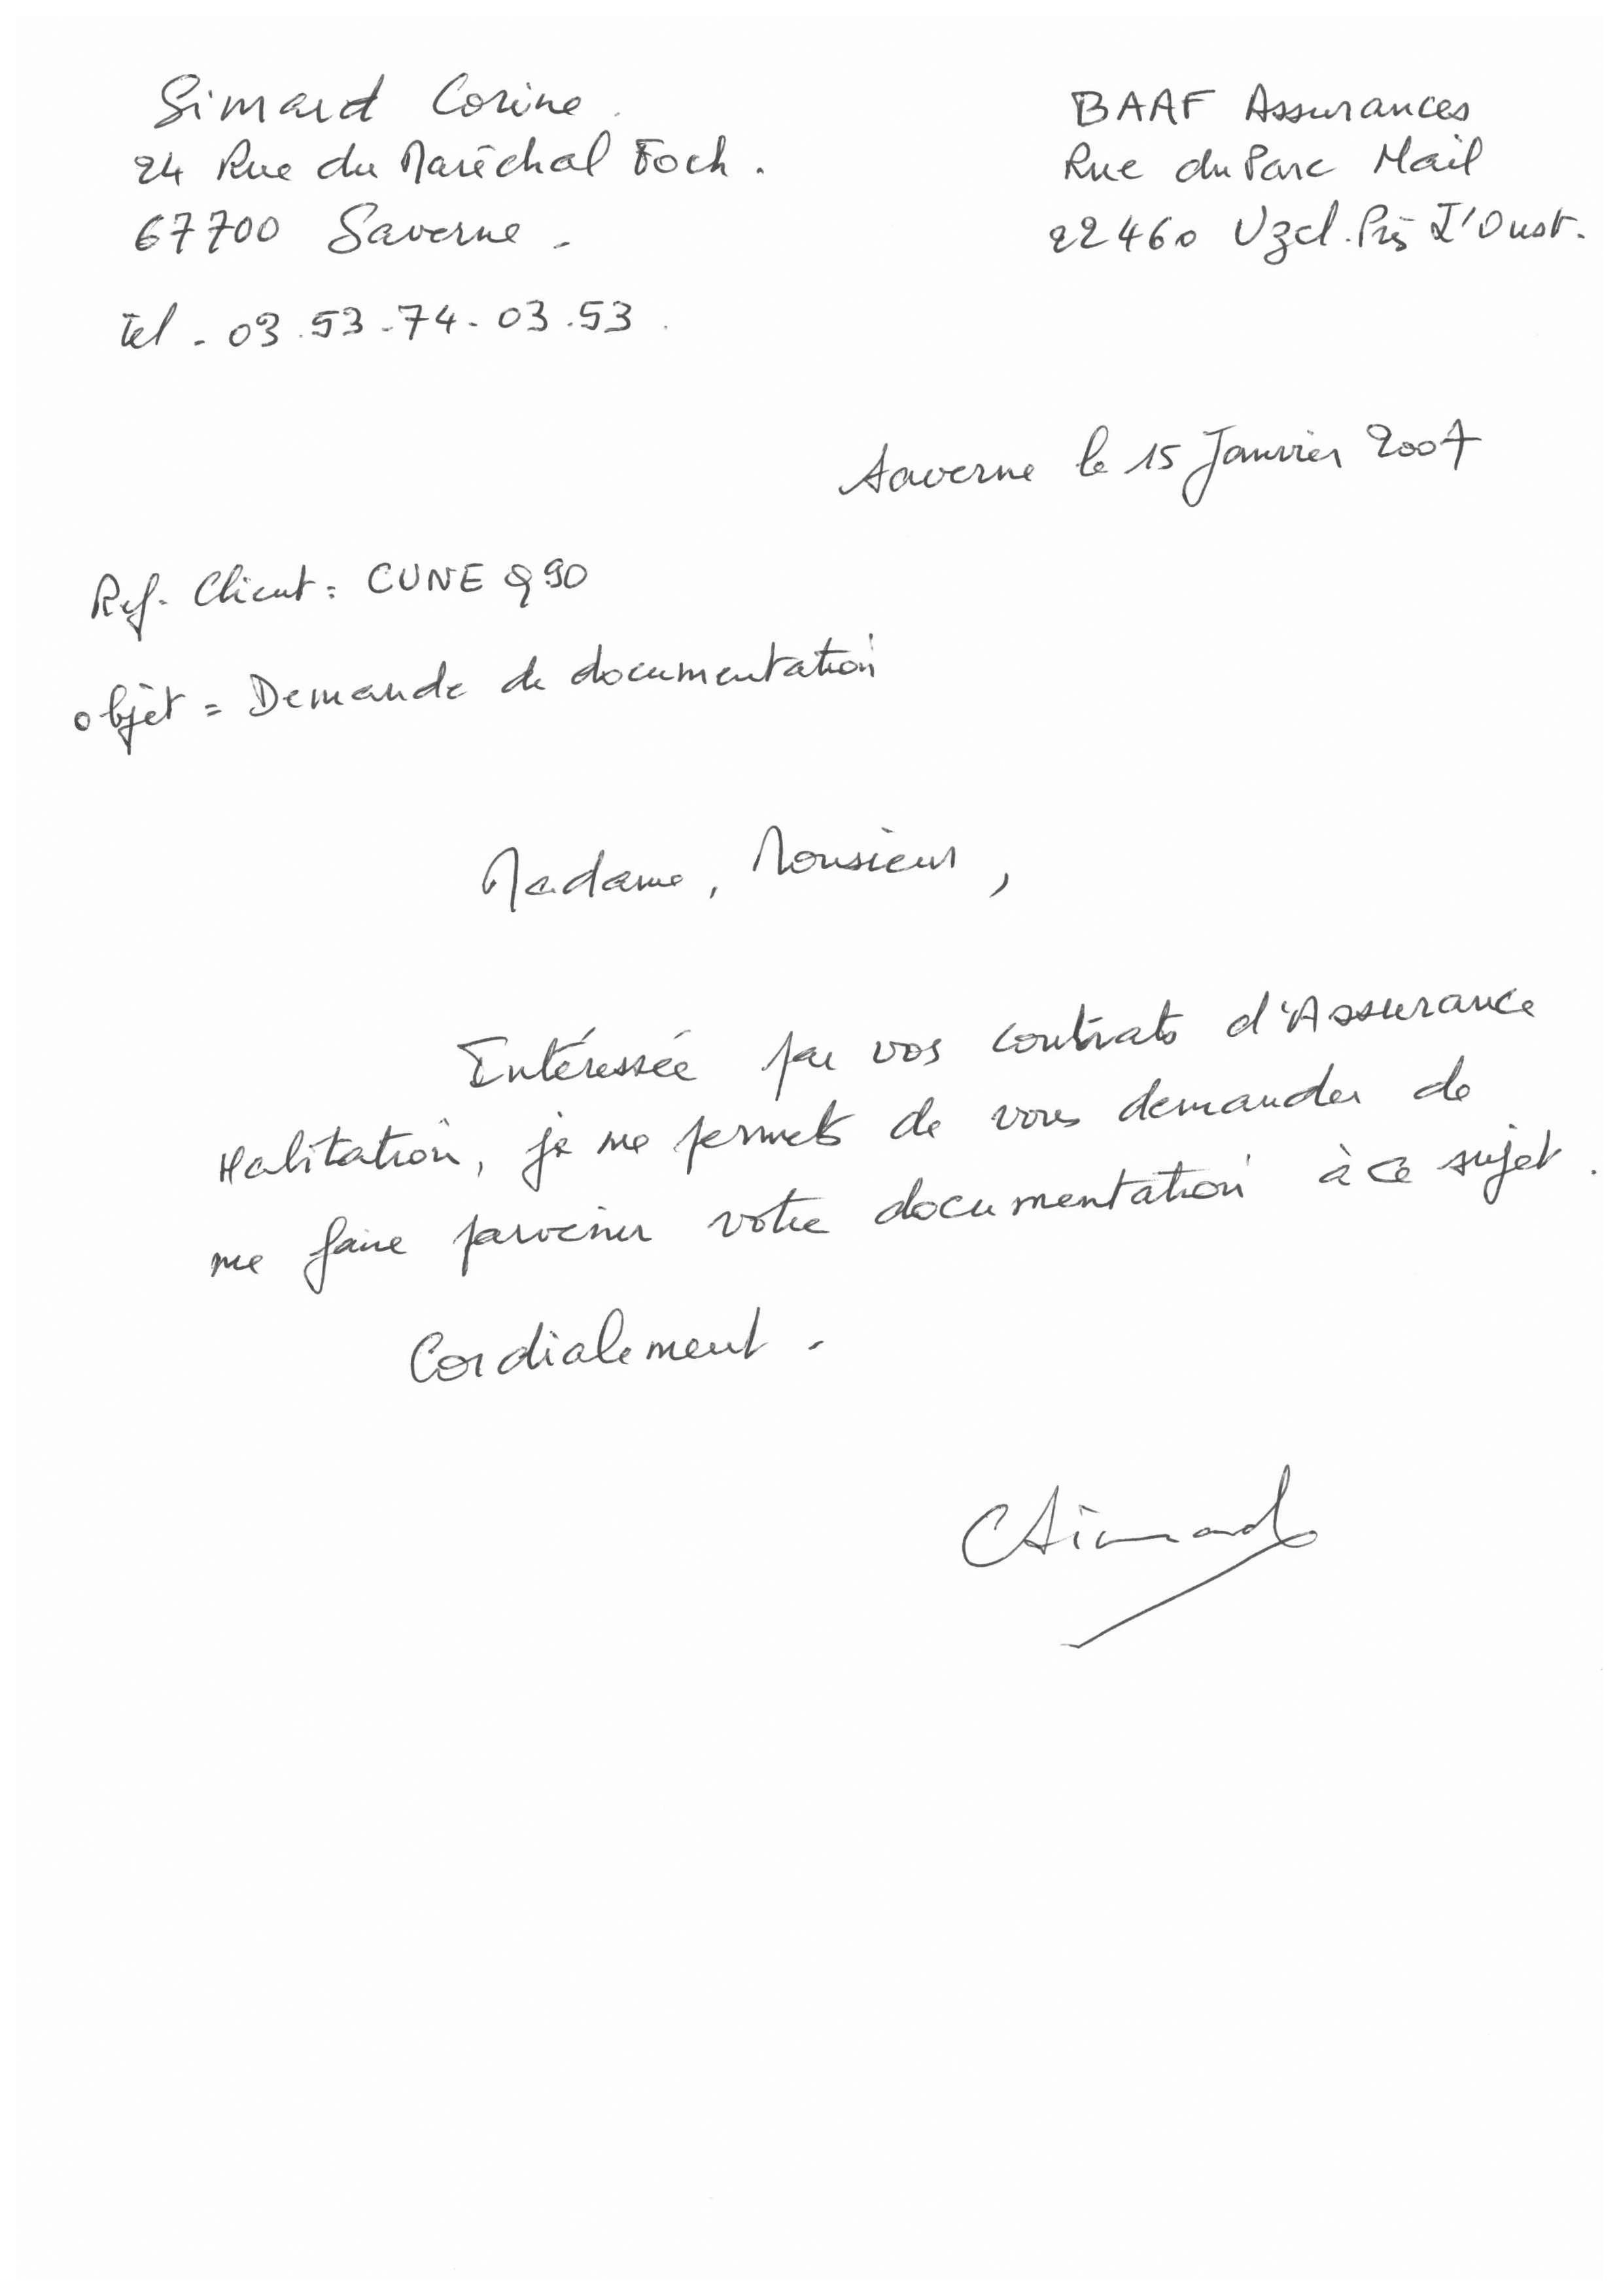 Simard Corine.
24 Rue du Maréchal Foch.
67700 Saverne -
Tel - 03.53-74-03.53.
BAAF Assurances
Rue du Parc Mail
22460 Uzel. Près L'Oust.
Saverne le 15 Janvier 2007
Ref. Client: CUNEQ90
objèt = Demande de documentation
Madame, Monsieur,
Intéressée par vos contrats d'Assurance
Habitation, je me permets de vous demander de
me faire parvenir votre documentation à ce sujet.
Cordialement.
CSimard